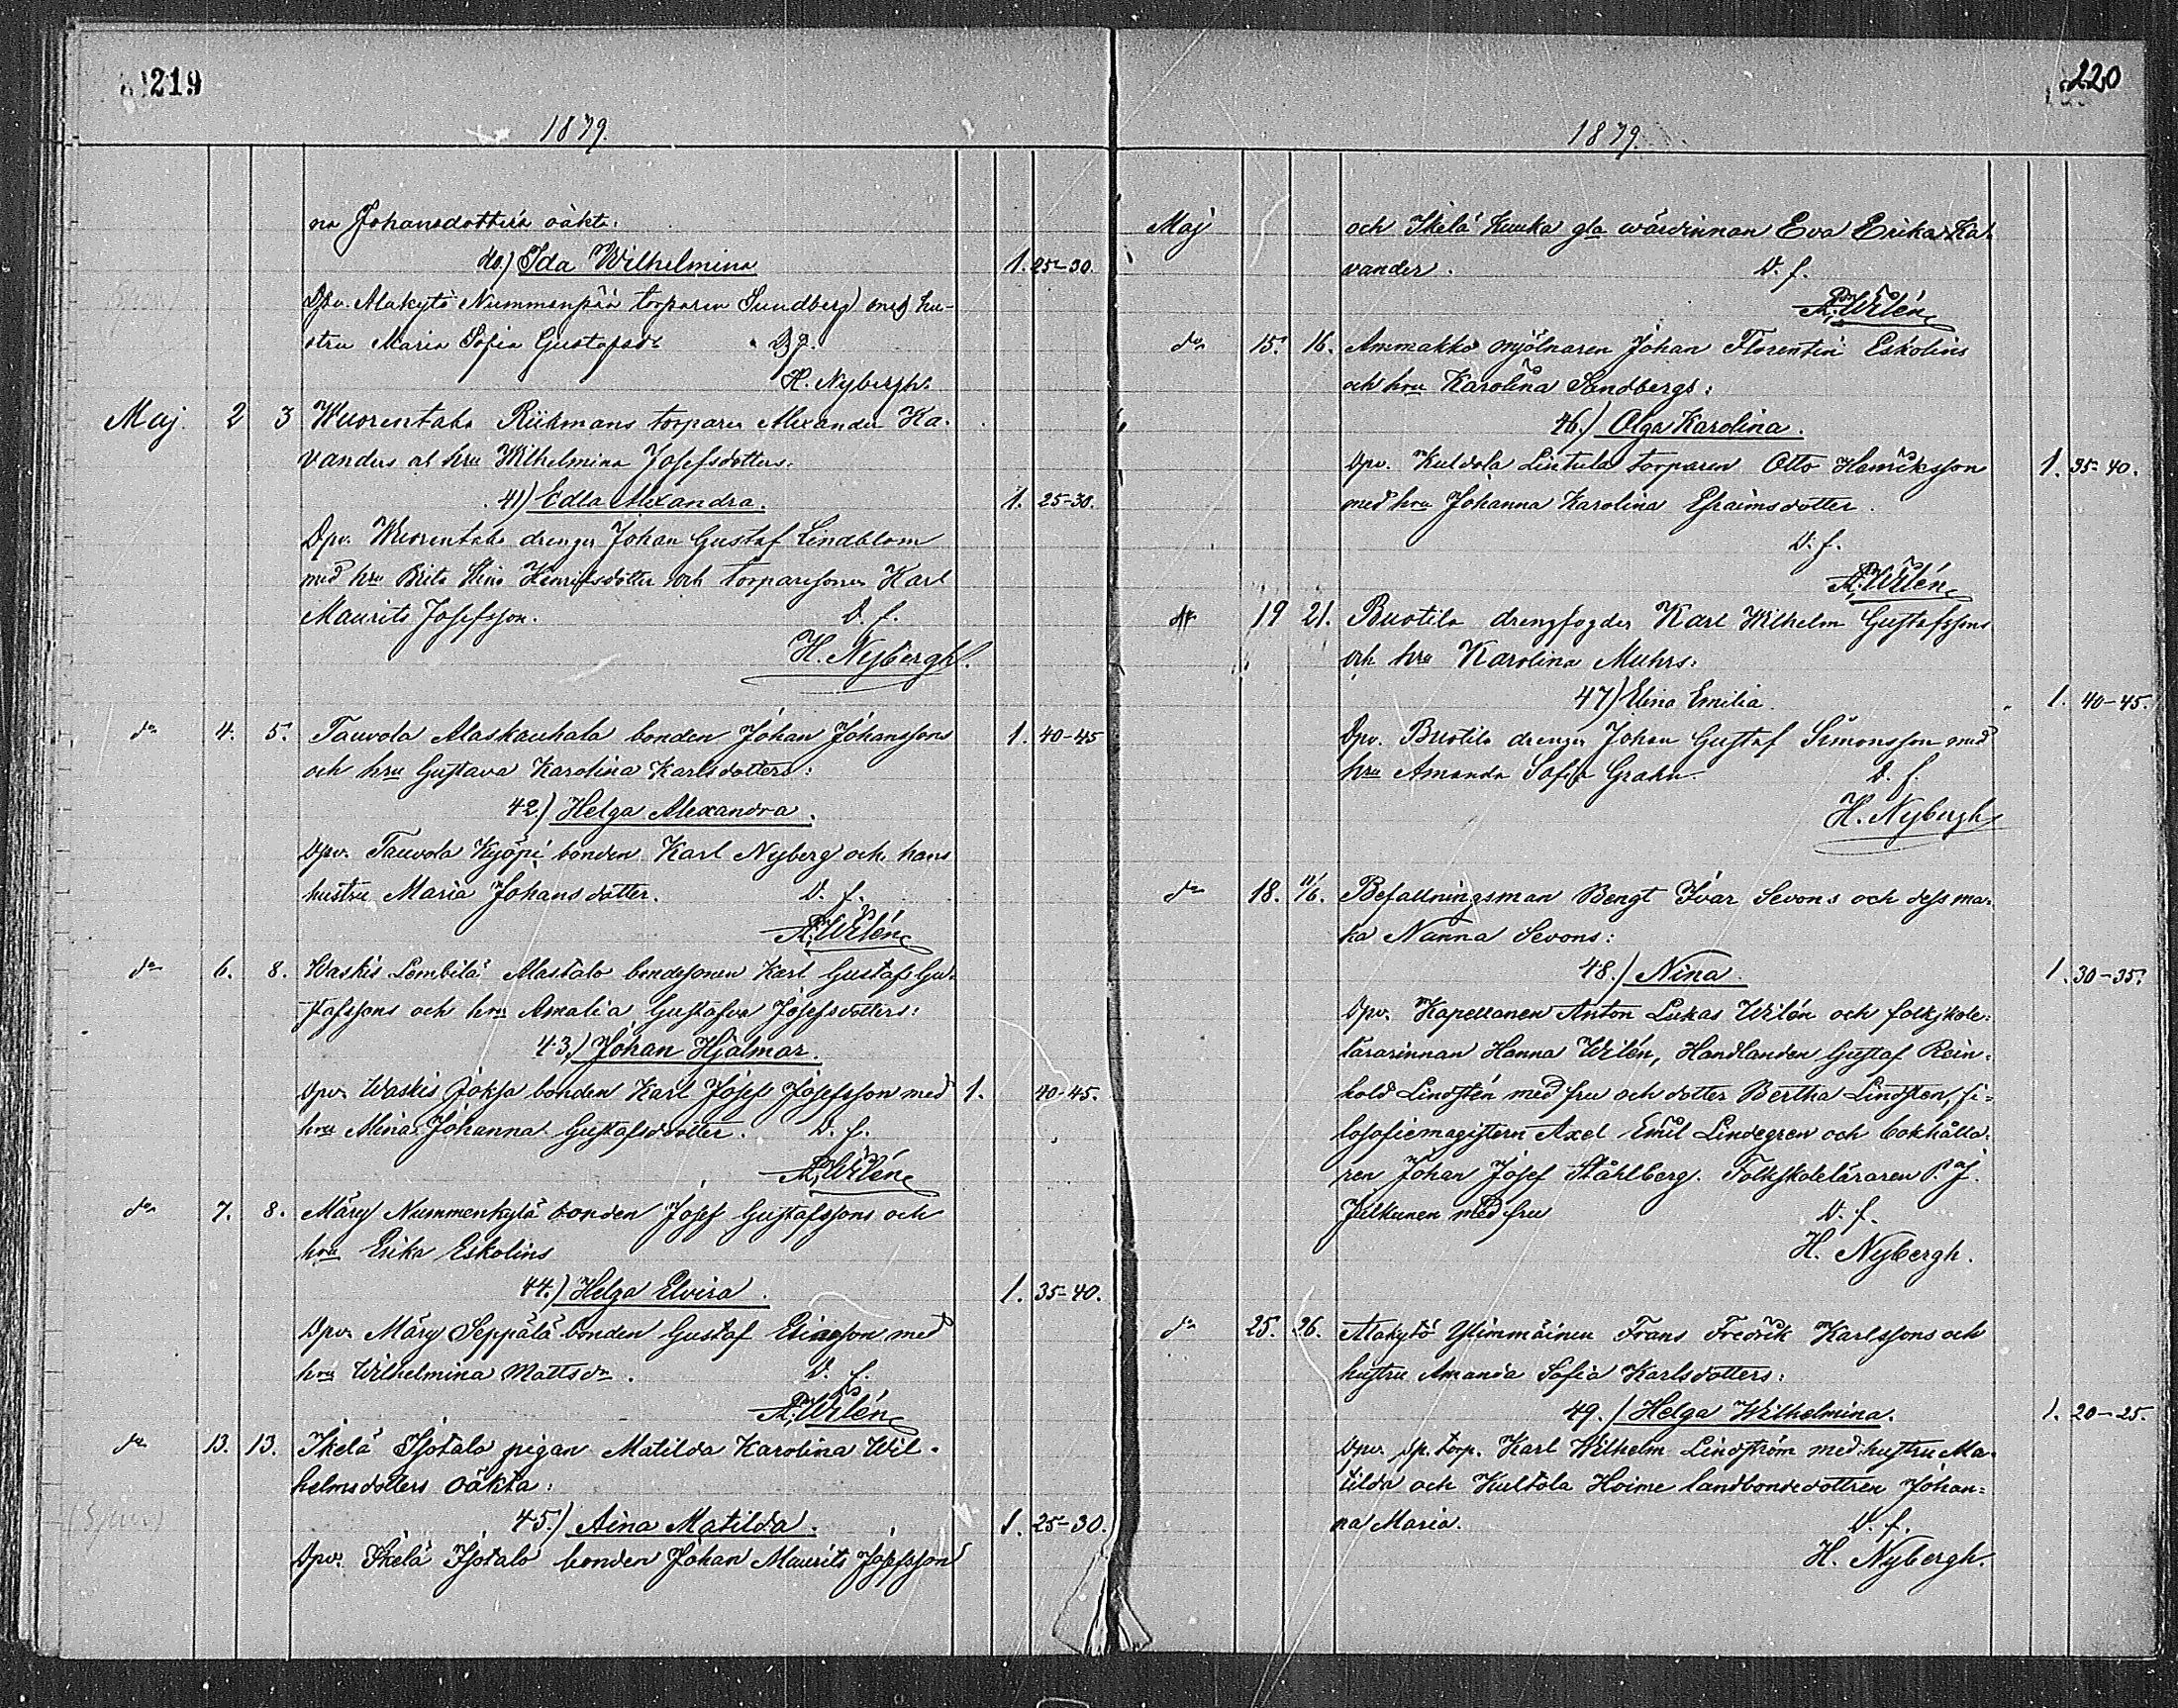 219
1879.
na Johansdotters oäkta:
40.) Ida Wilhelmina 1. 25-30.
Dpv. Alakytö Nummenpää torparen Sundberg med hu-
stru Maria Sofia Gustafsdr D. f.
H. Nybergh.
Maj. 2 3 Wuorentaka Riihmans torparen Alexander Ka-
vanders o. hru Wilhelmina Josefsdotters.
41) Edla Alexandra. 1. 25-30.
Dpv. Wuorentaka drengen Johan Gustaf Lindblom
med hru Brita Stina Henriksdotter och torparesonen Karl
Maurits Josefsson. D. f.
H. Nybergh.
do 4. 5. Tauvola Alaskauhala bonden Johan Johanssons 1. 40-45
och hru Gustava Karolina Karlsdotters:
42.) Helga Alexandra.
Dpv. Tauvola Kyöpi bonden Karl Nyberg och hans
hustru Maria Johansdotter. D. f.
A. Wilén
do 6. 8. Waskis Lembilä Alastalo bondesonen Karl Gustaf Gu-
stafssons och hru Amalia Gustafva Josefsdotters:
43.) Johan Hjalmar.
Dpv. Waskis Jokja bonden Karl Josef Josefsson med 1. 40-45.
hru Mina Johanna Gustafsdotter. D. f.
A. Wilén
do 7. 8. Märy Nummenkylä bonden Josef Gustafssons och
hru Erika Eskolins
44.) Helga Elvira. 1. 35-40.
Dpv. Märy Seppälä bonden Gustaf Eliasson med
hru Wilhelmina Mattsdr. D. f.
A. Wilén
do 13. 13. Ikelä Isotalo pigan Matilda Karolina Wil-
helmsdotters oäkta:
45.) Aina Matilda. 1. 25-30.
Dpv. Ikelä Isotalo bonden Johan Maurits Josefsson
220
1879.
Maj och Ikelä Kuuka gla värdinnan Eva Erika Ka-
vander. D. f.
A. Wilén
do 15. 16. Ammakko mjölnaren Johan Florentin Eskolins
och hru Karolina Sandbergs:
46.) Olga Karolina.
Dpv. Kuldola Liutula torparen Otto Henriksson 1. 35-40.
med hru Johanna Karolina Efraimsdotter.
D. f.
A. Wilén
do 19 21. Buotila drengfogden Karl Wilhelm Gustafssons
och hru Karolina Muhrs:
47) Elina Emilia. 1. 40-45.
Dpv. Buotila drengen Johan Gustaf Simonsson med
hru Amanda Sofia Grahn. D. f.
H. Nybergh
do 18. 11/6. Befallningsman Bengt Ivar Sevons och dess ma-
ka Nanna Sevons:
48.) Nina. 1. 30-35.
Dpv. Kapellanen Anton Lukas Wilén och folkskole-
lärarinnan Hanna Wilén, Handlanden Gustaf Rein-
hold Lindstén med fru och dotter Bertha Lindsten, fi-
losofiemagistern Axel Emil Lindegren och bokhålla-
ren Johan Josef Ståhlberg. Folkskoleläraren P. J.
Julkunen med fru D. f.
H. Nybergh.
do 25. 26. Alakytö Ylimmäinen Frans Fredrik Karlssons och
hustru Amanda Sofia Karlsdotters:
49.) Helga Wilhelmina. 1. 20-25.
Dpv. Sp. torp. Karl Wilhelm Lindström med hustru Ma-
tilda och Kultola Hoime landbondedottren Johan-
na Maria. D. f.
H. Nybergh.